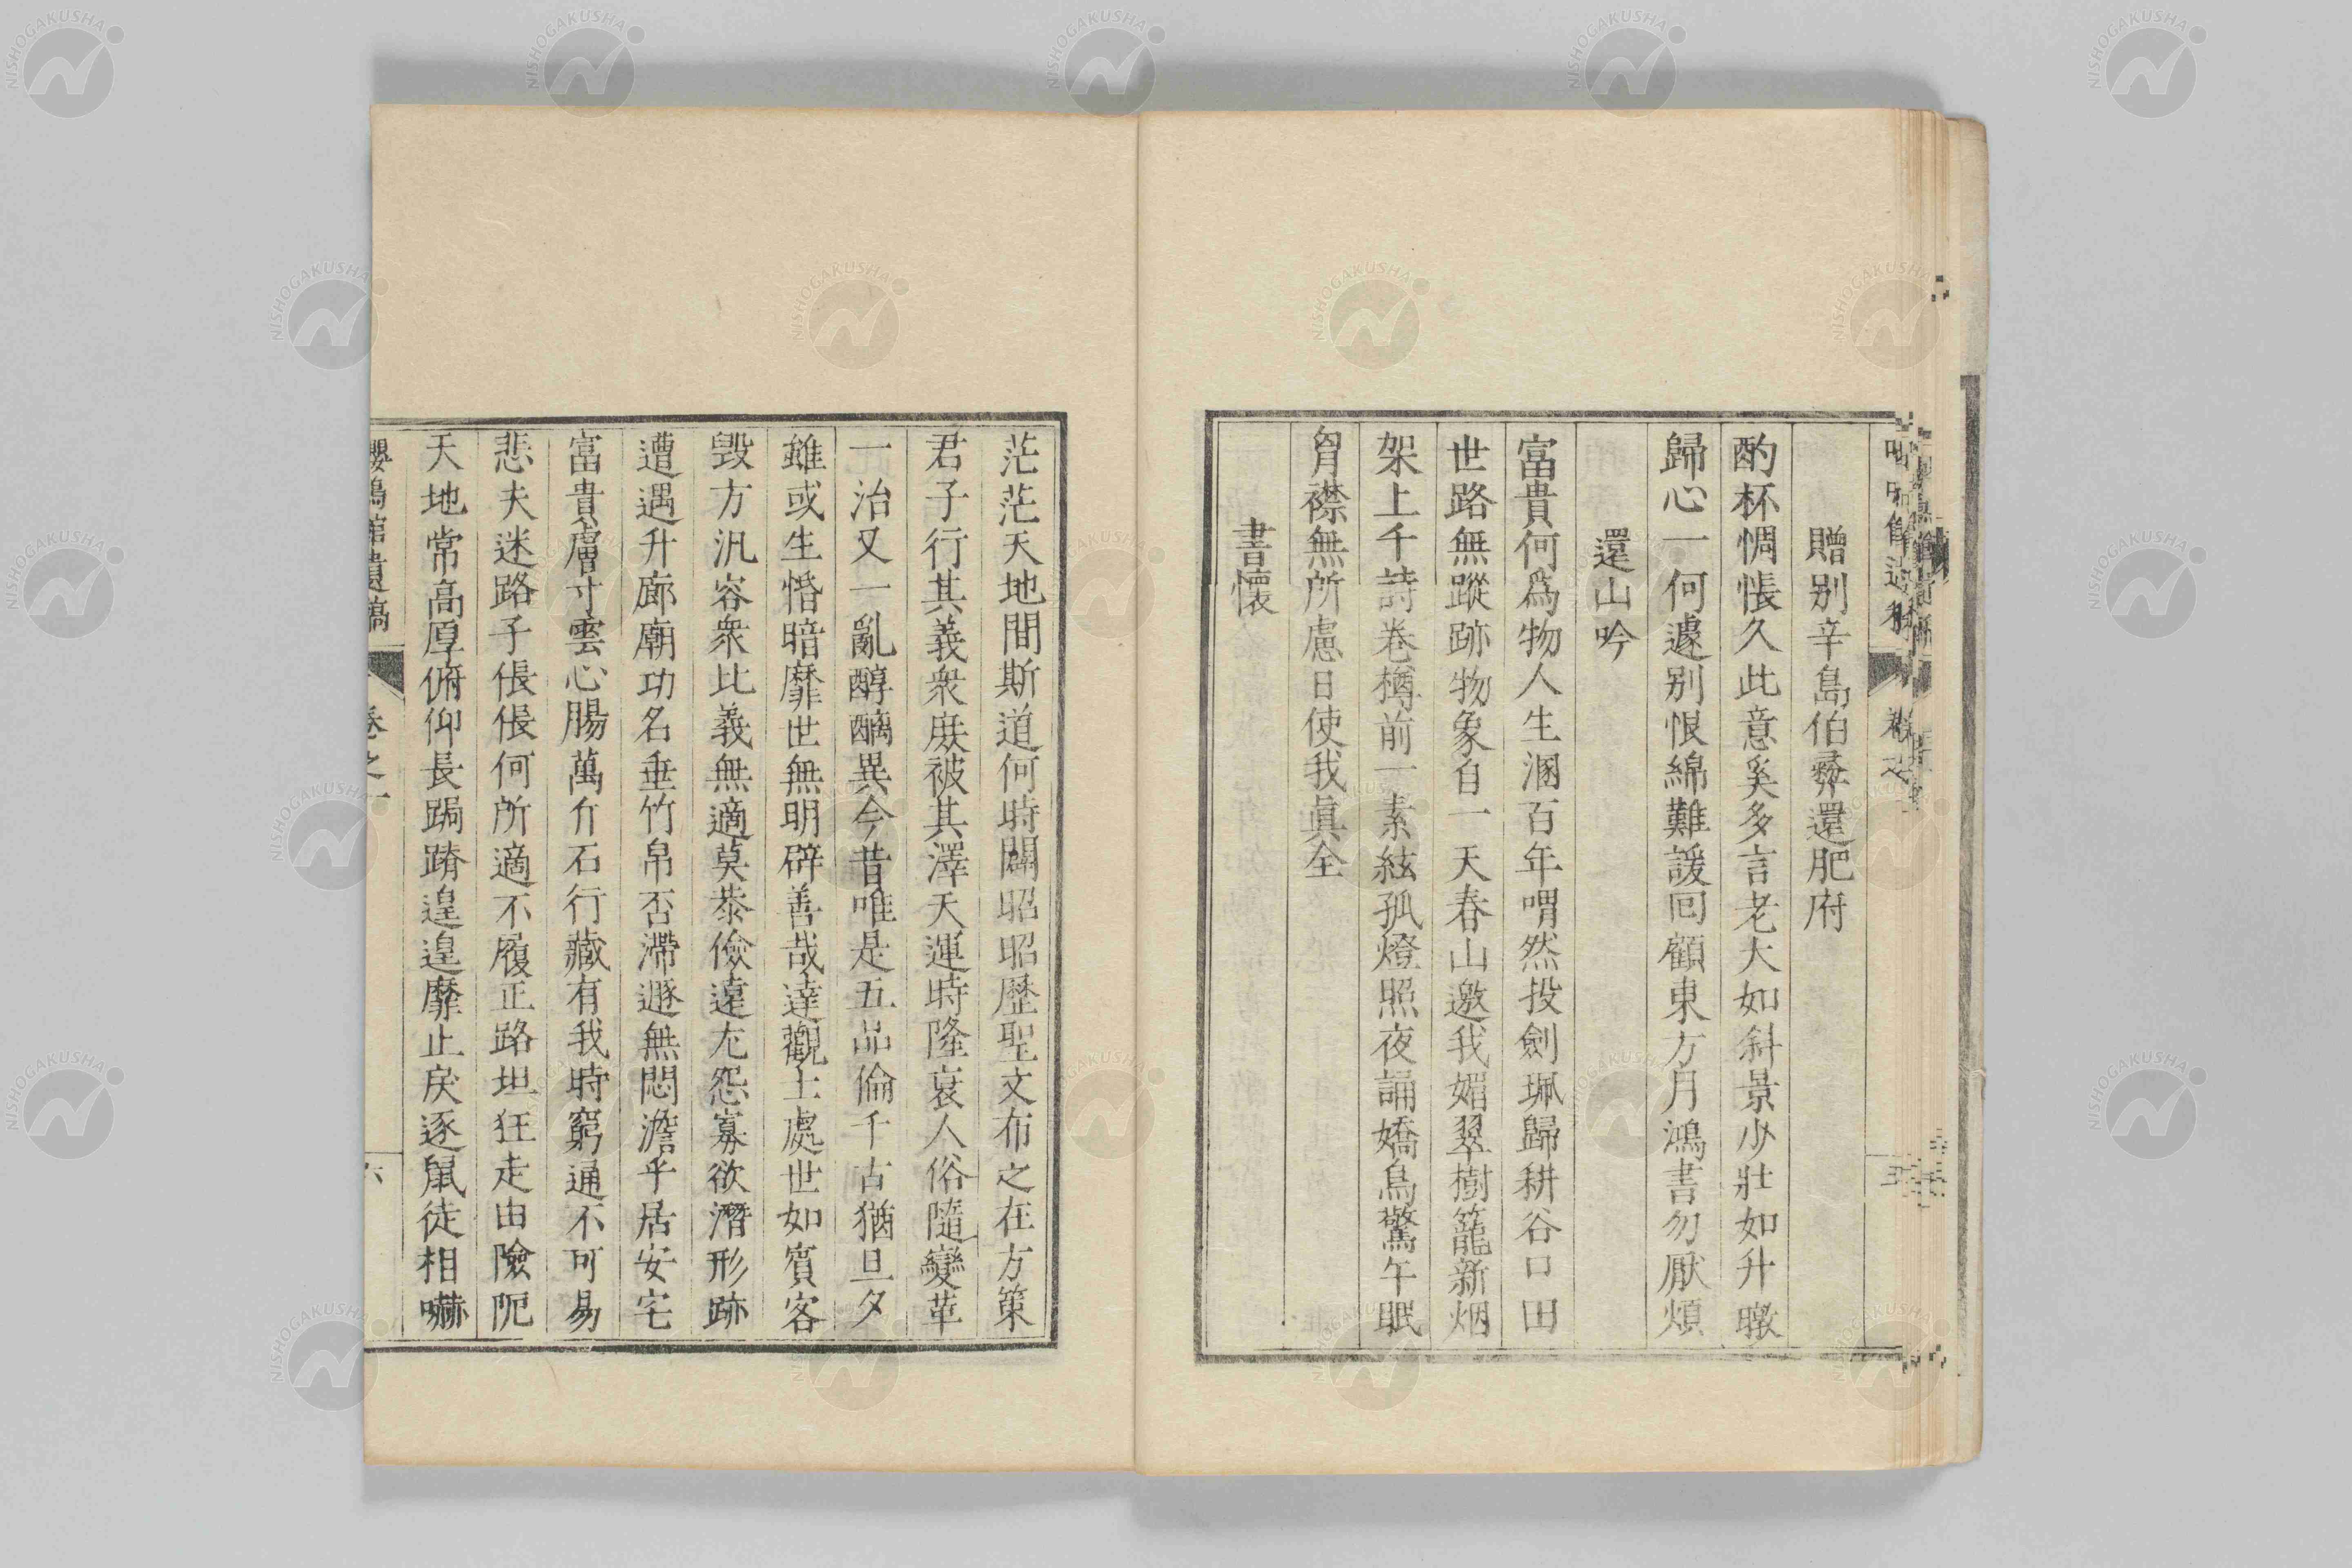 贈别辛島伯彜還肥府
酌杯惆悵久此意奚多言老大如斜景少壯如升暾
歸心一何遽别恨綿難諼回顧東方月鴻書勿厭煩
還山吟
富貴何爲物人生溷百年喟然投劍珮歸耕谷口田
世路無蹤跡物象自一天春山邀我媚翠樹籠新烟
架上千詩卷樽前一素絃孤燈照夜誦嬌鳥驚午眠
胷襟無所慮日使我眞全
書懷
茫茫天地間斯道何時闢昭昭歷聖文布之在方策
君子行其義衆庶被其澤天運時隆衰人俗隨變革
一治又一亂醇醨異今昔唯是五品倫千古猶旦夕
雖或生惛暗靡世無明辟善哉達觀士處世如賓客
毁方汎容衆比義無適莫恭儉遠尤怨寡欲潛形跡
遭遇升廊廟功名垂竹帛否滯遯無悶澹乎居安宅
富貴膚寸雲心腸萬介石行藏有我時窮通不可易
悲夫迷路子倀倀何所適不履正路坦狂走由險阨
天地常高厚俯仰長跼蹐遑遑靡止戾逐鼠徒相嚇
卷之一
六
NISHOGAKUSHA